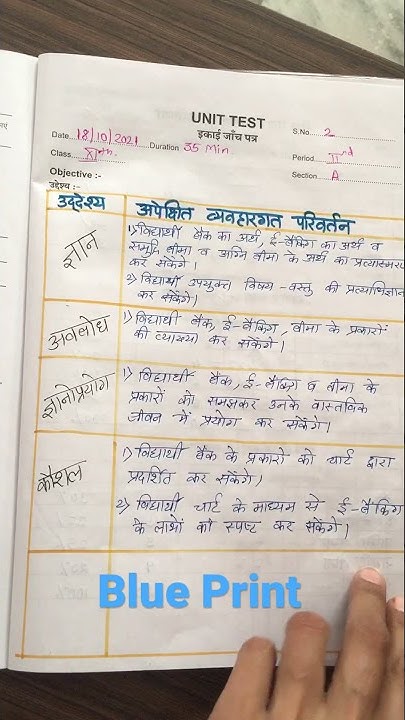 UNIT TEST
इकाई जाँच पत्र
S.No. 2
Date 18/10/2021 Duration 35 Min. Period IInd
Class XIth. Section A
Objective :-
उद्देश्य :-
उद्देश्य अपेक्षित व्यवहारगत परिवर्तन
ज्ञान
1) विद्यार्थी बैंक का अर्थ, ई-बैंकिंग का अर्थ व
समुद्रि बीमा व अग्नि बीमा के अर्थ का प्रत्यास्मरण
कर सकेंगे।
2) विद्यार्थी उपयुक्त विषय-वस्तु की प्रत्याभिज्ञान
कर सकेंगे।
अवबोध
1) विद्यार्थी बैंक, ई-बैंकिंग, बीमा के प्रकारों
की व्याख्या कर सकेंगे।
ज्ञानोप्रयोग
1) विद्यार्थी बैंक, ई-बैंकिंग व बीमा के
प्रकारों को समझकर उनके वास्तविक
जीवन में प्रयोग कर सकेंगे।
कौशल
1) विद्यार्थी बैंक के प्रकारो को चार्ट द्वारा
प्रदर्शित कर सकेंगे।
2) विद्यार्थी चार्ट के माध्यम से ई-बैंकिंग
के लाभों को स्पष्ट कर सकेंगे।
Blue Print